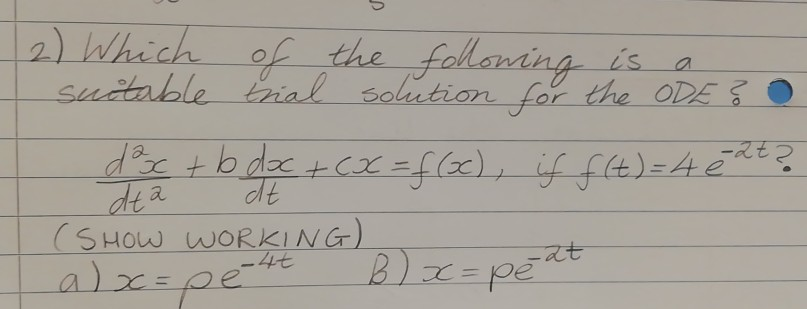 2) Which of the following is a
suitable trial solution for the ODE?
d²x/dt² + b dx/dt + cx = f(x), if f(t) = 4e^-2t?
(SHOW WORKING)
a) x = pe^-4t B) x = pe^-2t